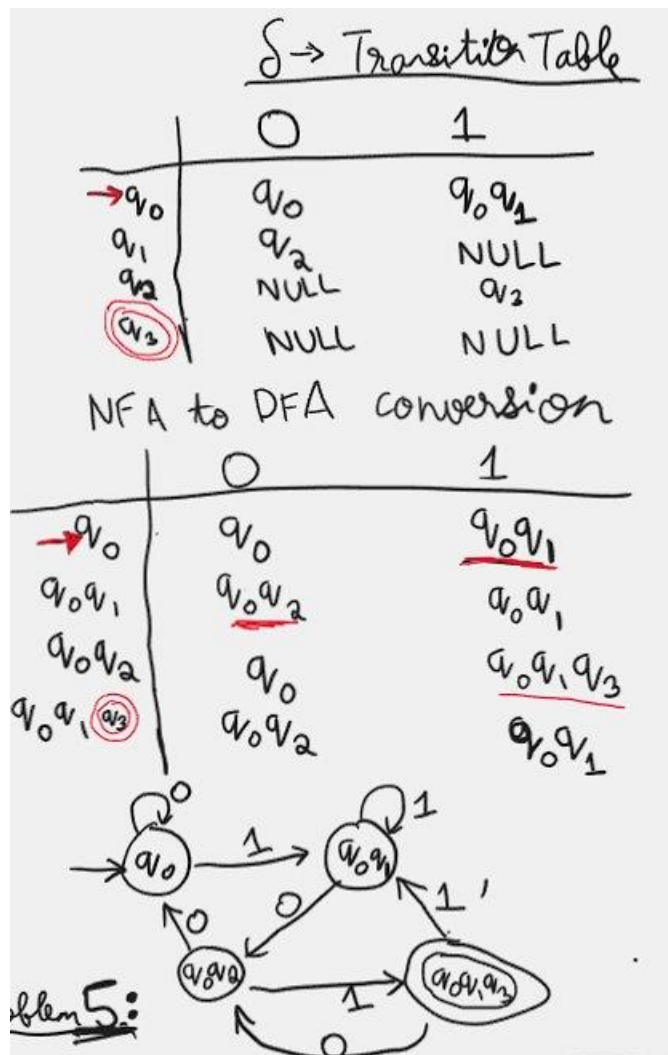 δ → Transition Table
0 1
→ q0 q0 q0q1
q1 q2 NULL
q2 NULL q3
q3 NULL NULL
NFA to DFA conversion
0 1
→ q0 q0 q0q1
q0q1 q0q2 q0q1
q0q2 q0 q0q1q3
q0q1q3 q0q2 q0q1
0 1
q0 1 q0q1
0 0 1
q0q2 1 q0q1q3
oblem 5:
0